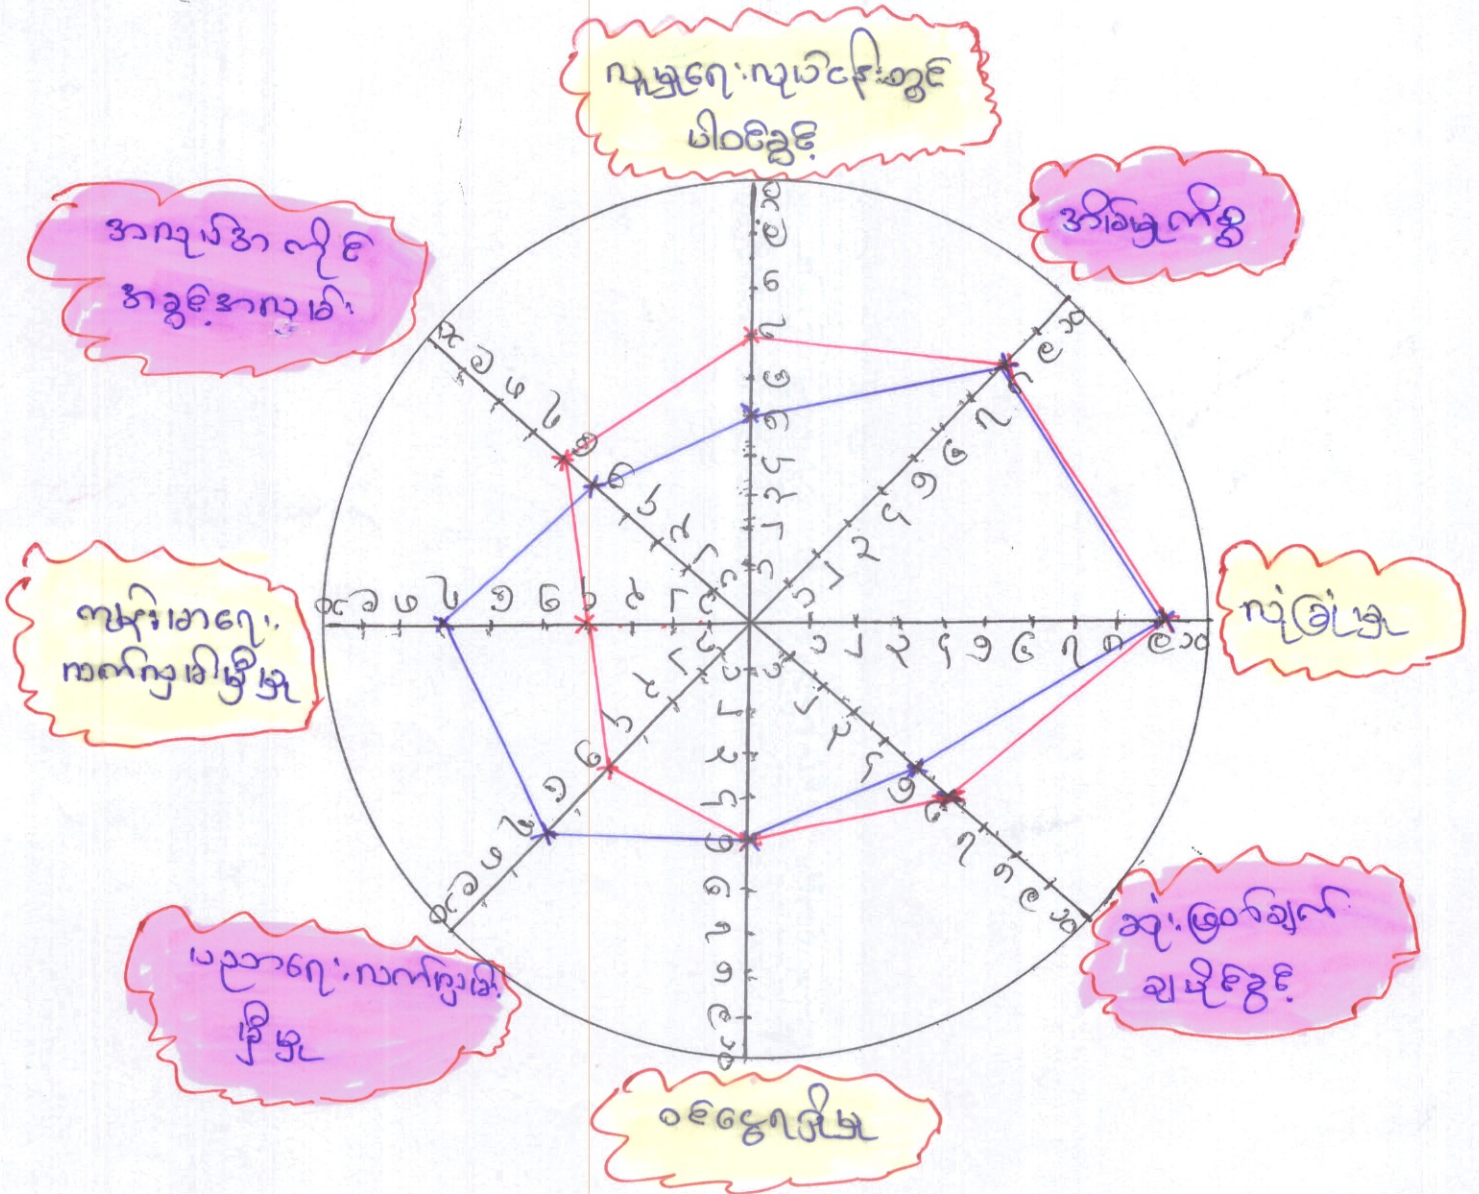 လူမှုရေးလုပ်ငန်းတွင်
ပါဝင်ခွင့်
အိမ်မှုကိစ္စ
လုံခြုံမှု
ဆုံးဖြတ်ချက်
ချပိုင်ခွင့်
ဝင်ငွေရရှိမှု
ပညာရေးလက်လှမ်း
မှီမှု
ကျန်းမာရေး
လက်လှမ်းမှီမှု
အလုပ်အကိုင်
အခွင့်အလမ်း
၁ ၂ ၃ ၄ ၅ ၆ ၇ ၈ ၉ ၁၀
၁ ၂ ၃ ၄ ၅ ၆ ၇ ၈ ၉ ၁၀
၁ ၂ ၃ ၄ ၅ ၆ ၇ ၈ ၉ ၁၀
၁ ၂ ၃ ၄ ၅ ၆ ၇ ၈ ၉ ၁၀
၁ ၂ ၃ ၄ ၅ ၆ ၇ ၈ ၉ ၁၀
၁ ၂ ၃ ၄ ၅ ၆ ၇ ၈ ၉ ၁၀
၁ ၂ ၃ ၄ ၅ ၆ ၇ ၈ ၉ ၁၀
၁ ၂ ၃ ၄ ၅ ၆ ၇ ၈ ၉ ၁၀